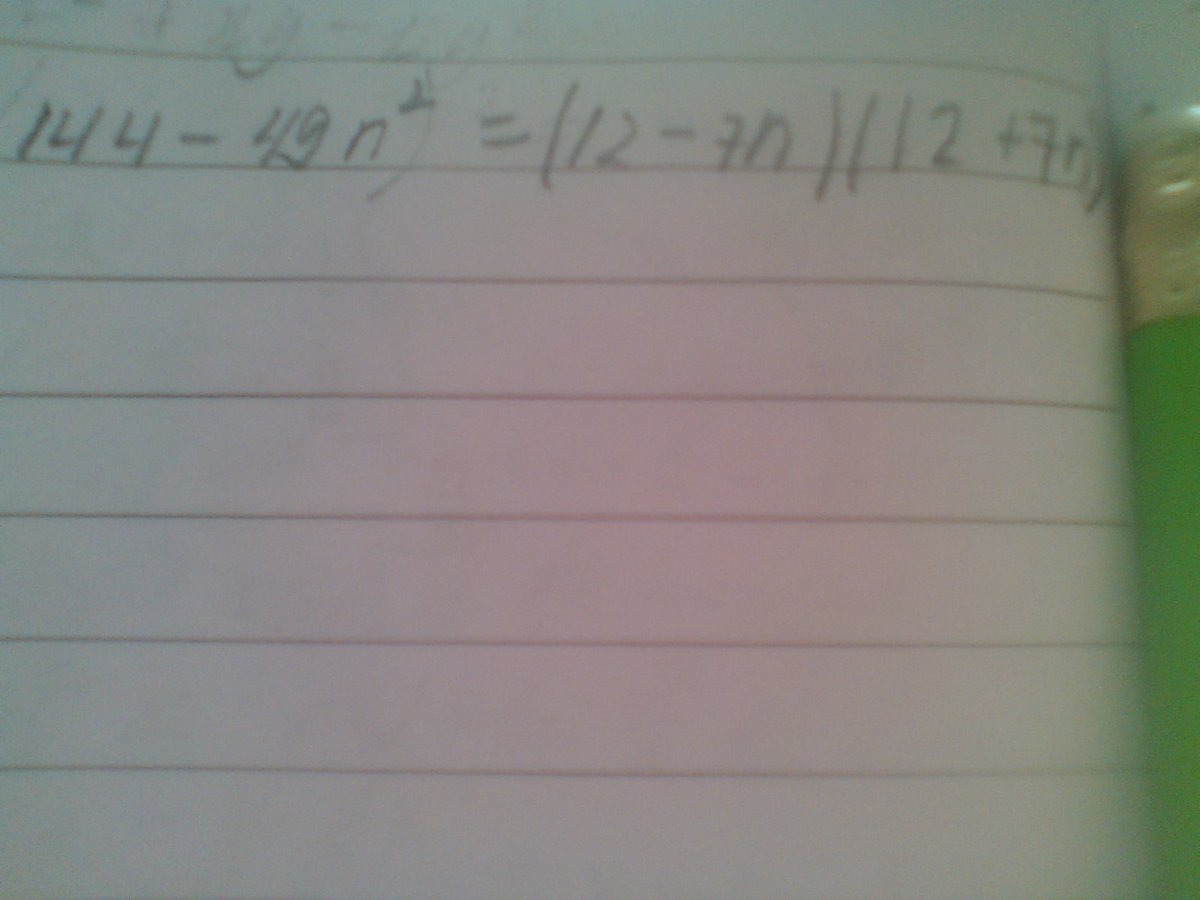 (144 - 49n²) = (12 - 7n)(12 + 7n)